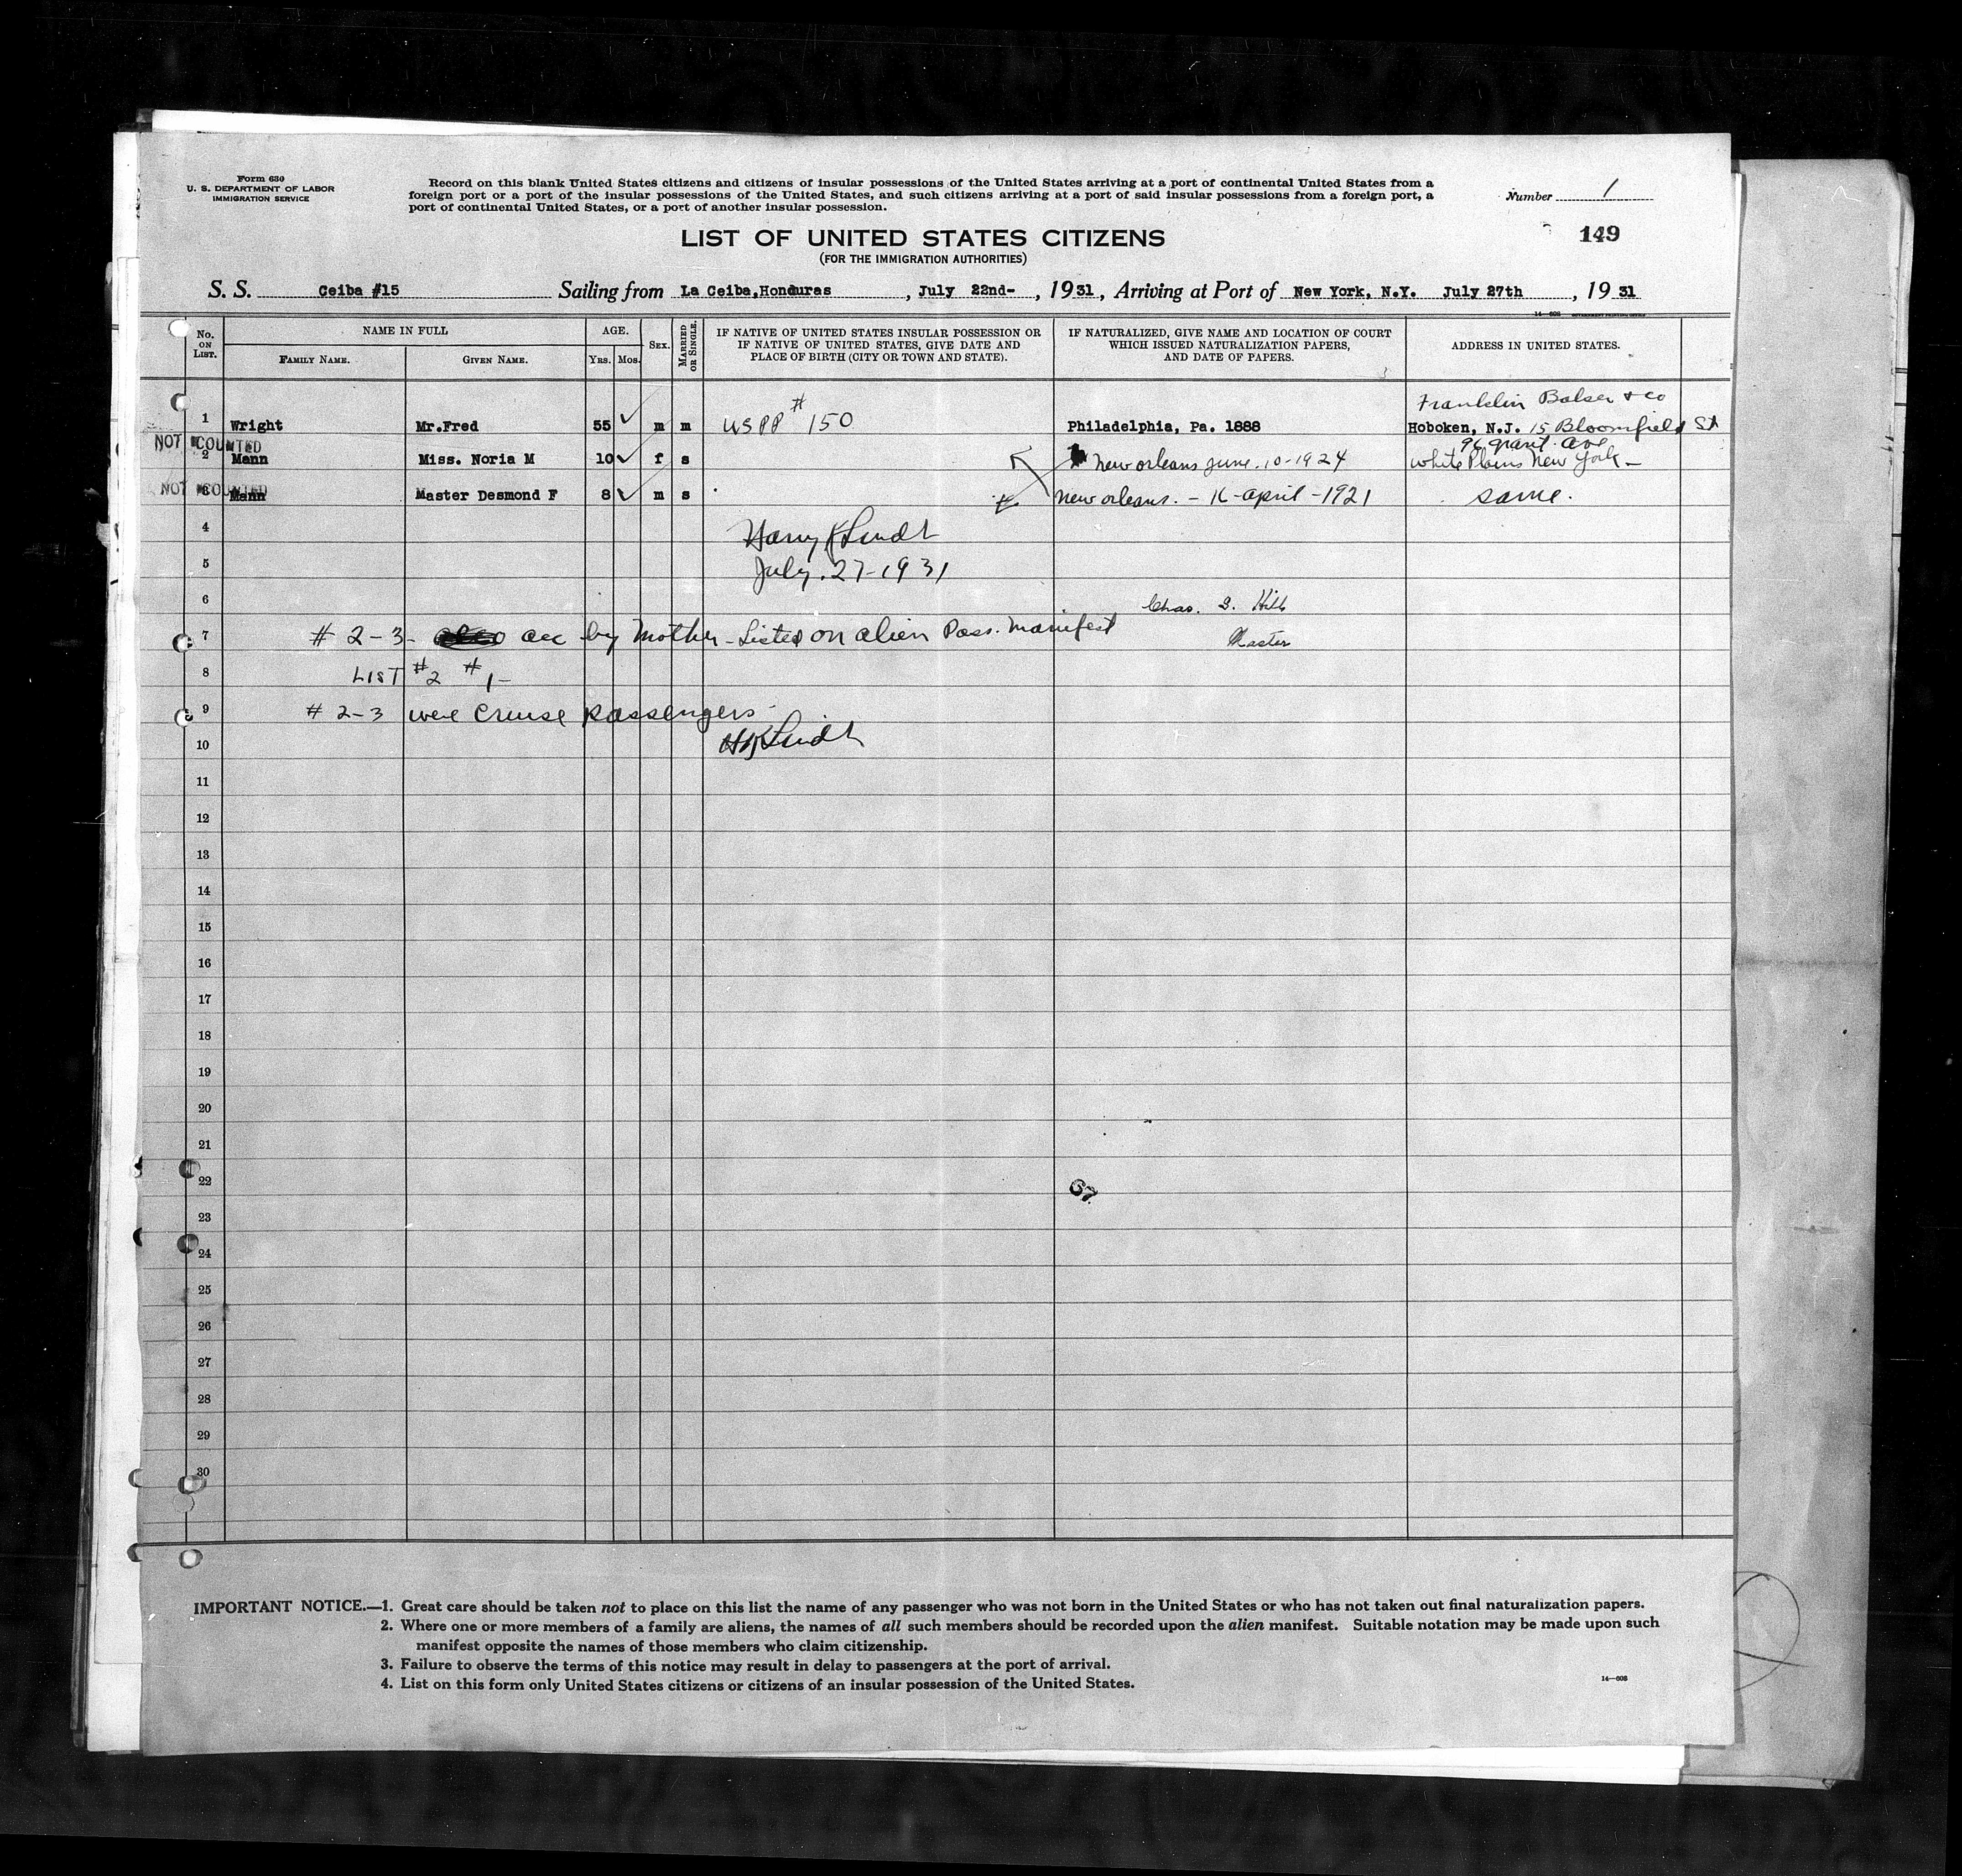 Form 630
U. S. DEPARTMENT OF LABOR
IMMIGRATION SERVICE
Record on this blank United States citizens and citizens of insular possessions of the United States arriving at a port of continental United States from a
foreign port or a port of the insular possessions of the United States, and such citizens arriving at a port of said insular possessions from a foreign port, a
port of continental United States, or a port of another insular possession.
Number 1
149
LIST OF UNITED STATES CITIZENS
(FOR THE IMMIGRATION AUTHORITIES)
S. S. Ceiba #15 Sailing from La Ceiba, Honduras, July 22nd-, 1931, Arriving at Port of New York, N.Y. July 27th, 1931
14—608 GOVERNMENT PRINTING OFFICE
No. ON LIST.
NAME IN FULL
FAMILY NAME.
GIVEN NAME.
AGE.
YRS.
MOS.
SEX.
MARRIED OR SINGLE.
IF NATIVE OF UNITED STATES INSULAR POSSESSION OR
IF NATIVE OF UNITED STATES, GIVE DATE AND
PLACE OF BIRTH (CITY OR TOWN AND STATE).
IF NATURALIZED, GIVE NAME AND LOCATION OF COURT
WHICH ISSUED NATURALIZATION PAPERS,
AND DATE OF PAPERS.
ADDRESS IN UNITED STATES.
Franklin Balser & Co
1 Wright Mr.Fred 55 m m USPP # 150 Philadelphia, Pa. 1888 Hoboken, N.J. 15 Bloomfield St
NOT COUNTED
96 grant ave
2 Mann Miss. Noria M 10 f s New orleans June 10-1924 white Plains New York -
NOT COUNTED
3 Mann Master Desmond F 8 m s New orleans. - 16 april - 1921 same.
4 Harry K Lindt
5 July. 27-1931
6 Chas. Hill
7 # 2-3- acc by Mother - Listed on alien Pass. Manifest Master
8 LIST #2 #1-
9 # 2-3 were Cruise passengers
10 HKLindt
11
12
13
14
15
16
17
18
19
20
21
22
67.
23
24
25
26
27
28
29
30
IMPORTANT NOTICE.—1. Great care should be taken not to place on this list the name of any passenger who was not born in the United States or who has not taken out final naturalization papers.
2. Where one or more members of a family are aliens, the names of all such members should be recorded upon the alien manifest. Suitable notation may be made upon such
manifest opposite the names of those members who claim citizenship.
3. Failure to observe the terms of this notice may result in delay to passengers at the port of arrival.
4. List on this form only United States citizens or citizens of an insular possession of the United States.
14—608